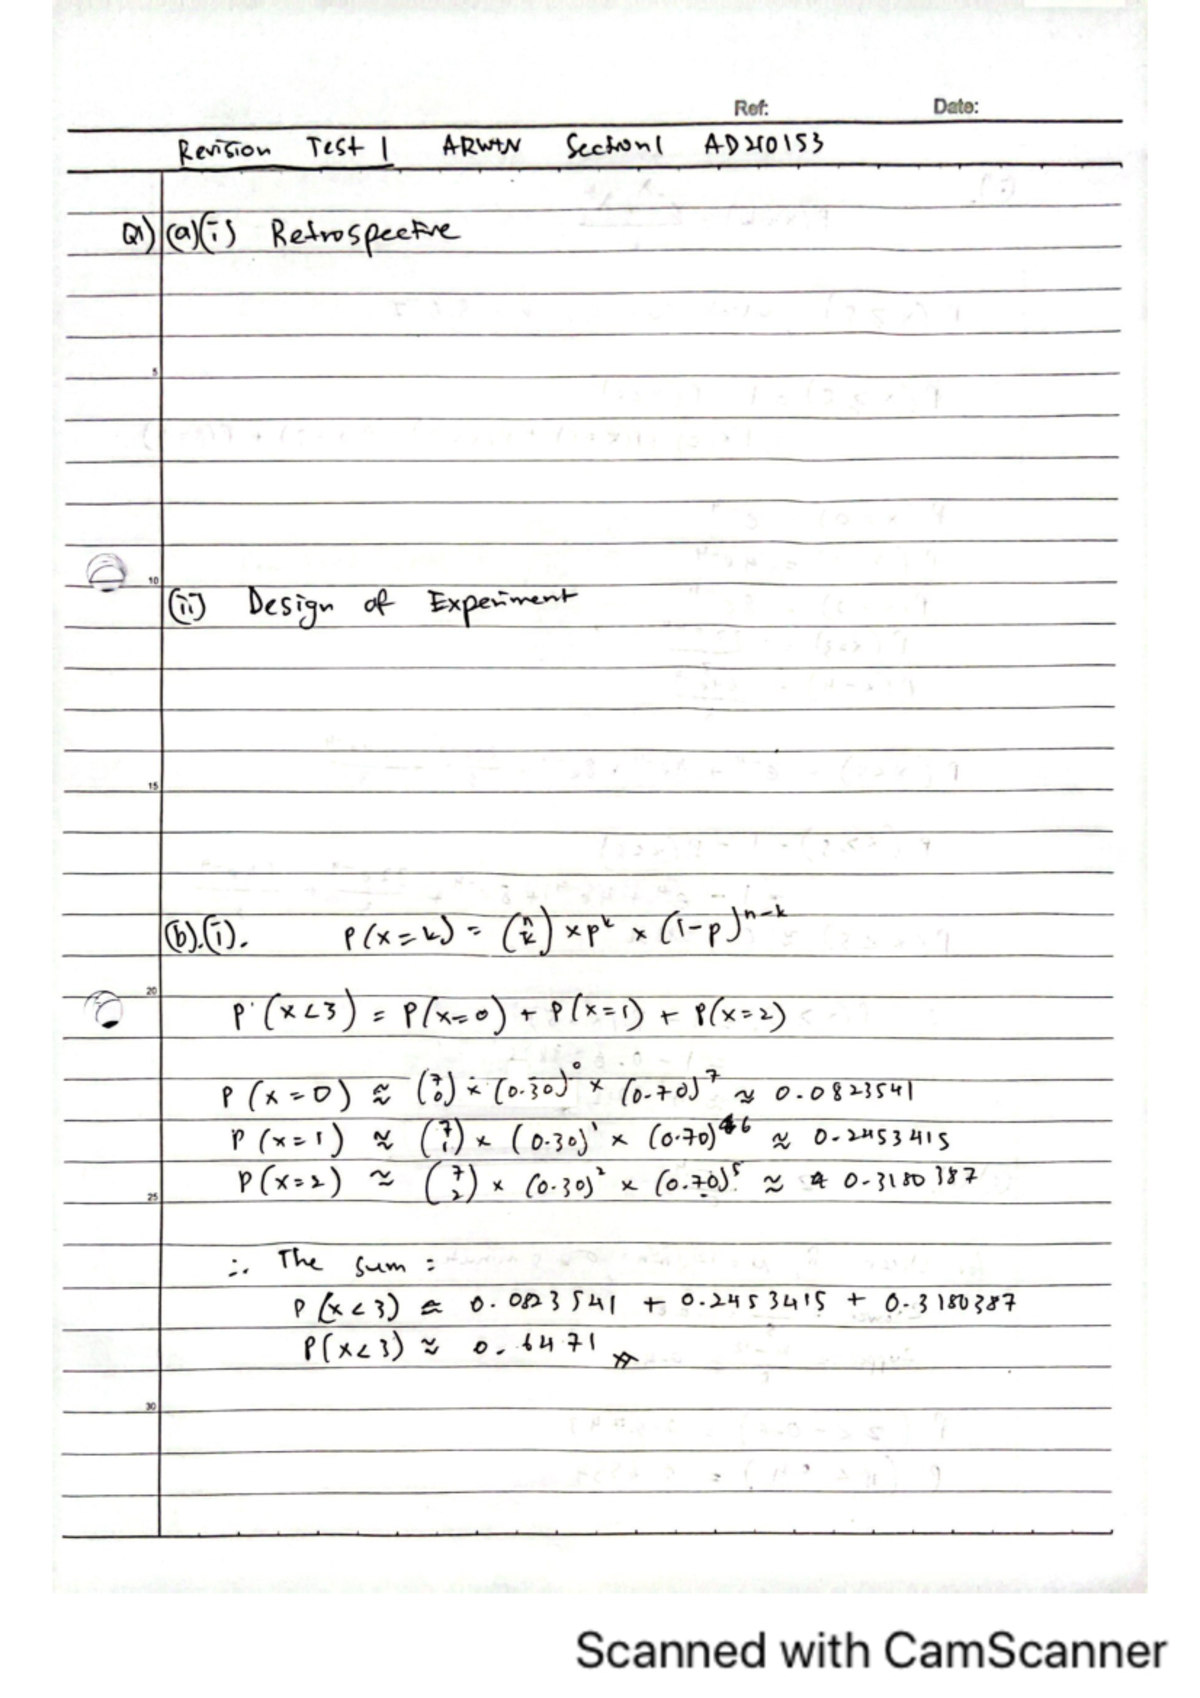 Ref: Date:
Revision Test 1 ARWIN Section 1 AD210153
Q1) (a)(i) Retrospective
5
10
(ii) Design of Experiment
15
(b).(i). P(x=k) = (n k) × p^k × (1-p)^n-k
20
P (x<3) = P(x=0) + P(x=1) + P(x=2)
P (x=0) ≈ (7 0) × (0.30)^0 × (0.70)^7 ≈ 0.0823541
P (x=1) ≈ (7 1) × (0.30)^1 × (0.70)^6 ≈ 0.2453415
P(x=2) ≈ (7 2) × (0.30)^2 × (0.70)^5 ≈ 0.3180387
25
∴ The sum =
P(x<3) ≈ 0.0823541 + 0.2453415 + 0.3180387
P(x<3) ≈ 0.6471
30
Scanned with CamScanner